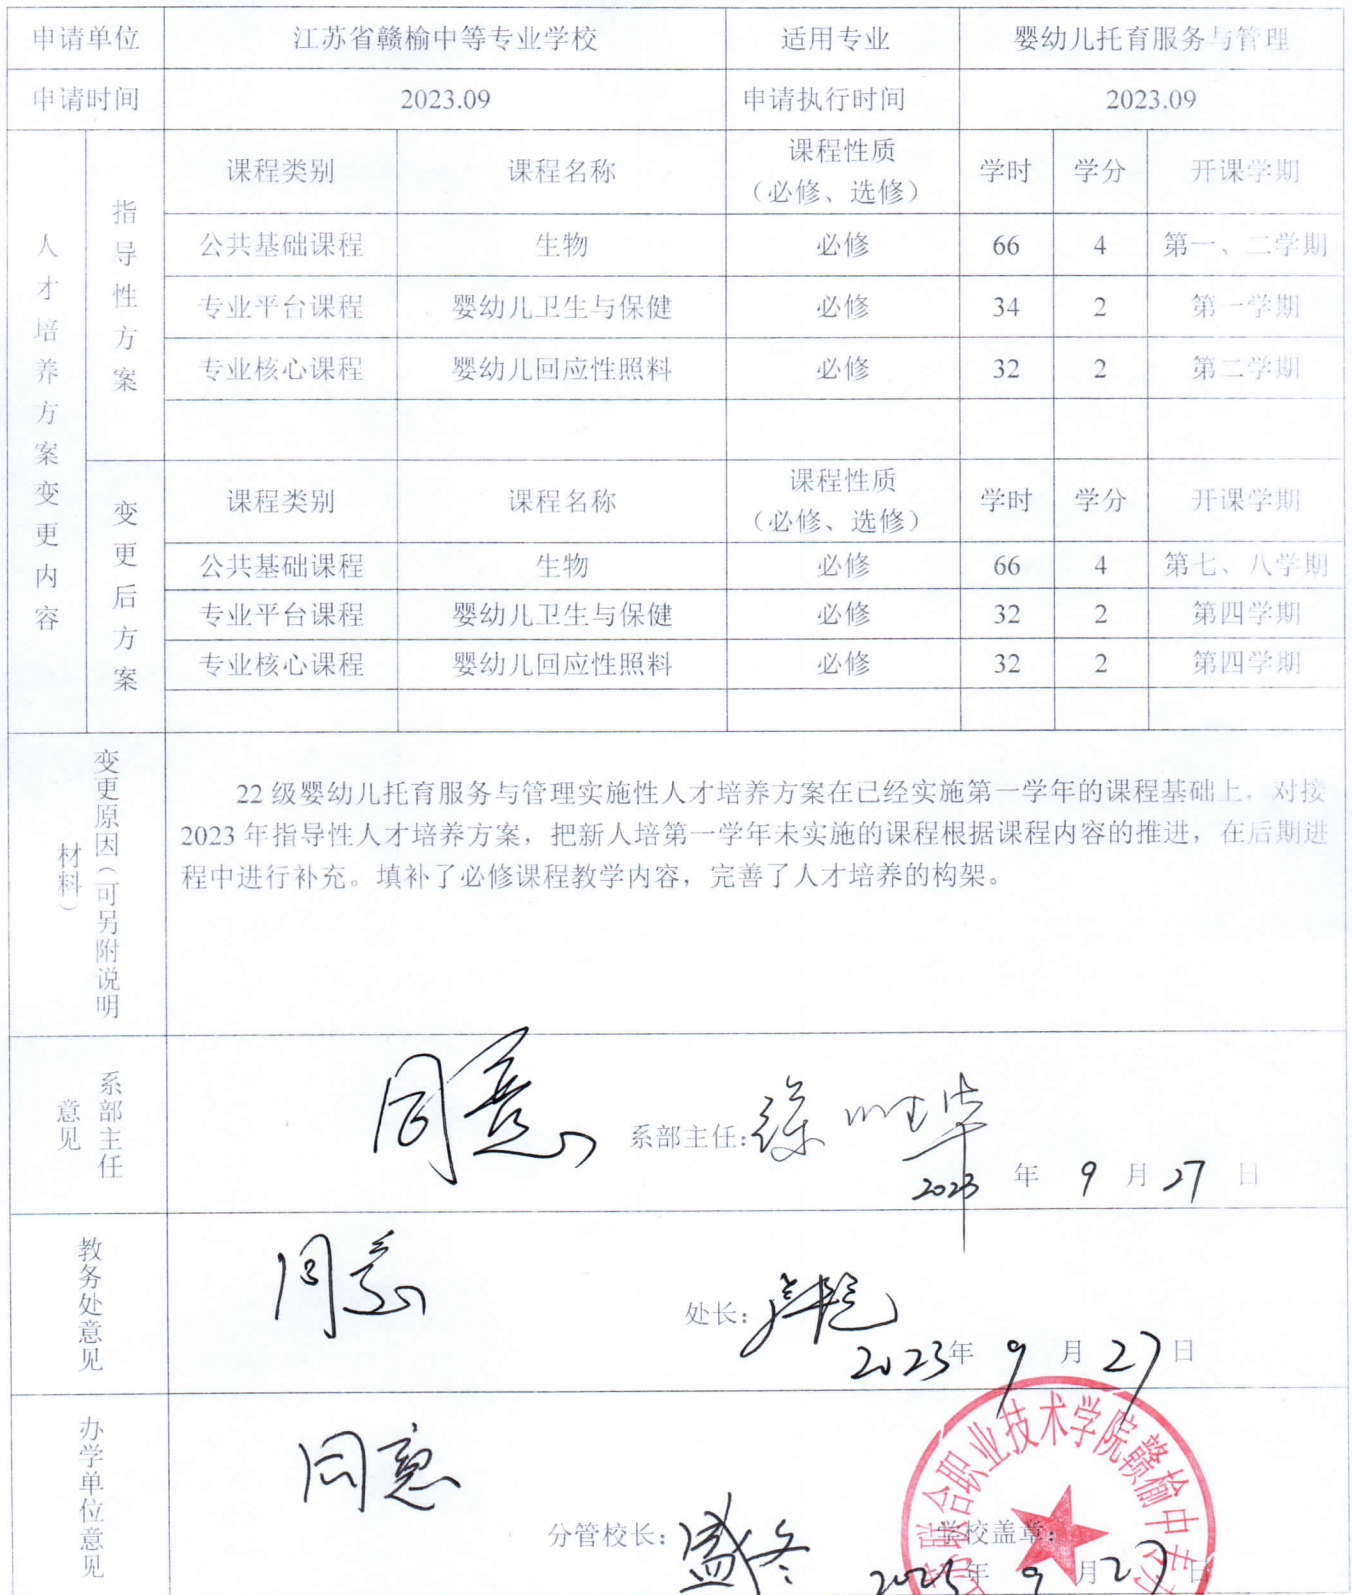 申请单位 江苏省赣榆中等专业学校 适用专业 婴幼儿托育服务与管理
申请时间 2023.09 申请执行时间 2023.09
人才培养方案变更内容
指导性方案
课程类别 课程名称 课程性质（必修、选修） 学时 学分 开课学期
公共基础课程 生物 必修 66 4 第一、二学期
专业平台课程 婴幼儿卫生与保健 必修 34 2 第一学期
专业核心课程 婴幼儿回应性照料 必修 32 2 第二学期
变更后方案
课程类别 课程名称 课程性质（必修、选修） 学时 学分 开课学期
公共基础课程 生物 必修 66 4 第七、八学期
专业平台课程 婴幼儿卫生与保健 必修 32 2 第四学期
专业核心课程 婴幼儿回应性照料 必修 32 2 第四学期
变更原因（可另附说明材料）
22 级婴幼儿托育服务与管理实施性人才培养方案在已经实施第一学年的课程基础上，对接
2023 年指导性人才培养方案，把新人培第一学年未实施的课程根据课程内容的推进，在后期进
程中进行补充。填补了必修课程教学内容，完善了人才培养的构架。
系部主任意见
同意
系部主任：
2023 年 9 月 27 日
教务处意见
同意
处长：
2023 年 9 月 27 日
办学单位意见
同意
分管校长： 学校盖章：
2023 年 9 月 27 日
苏联合职业技术学院赣榆中专办